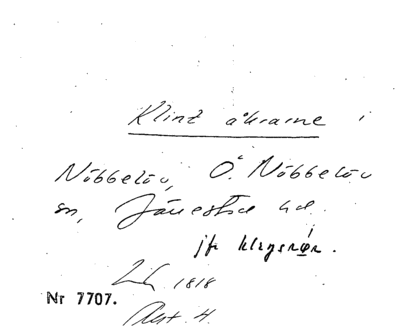 Klint åkrarne
Nöbbelöv, Ö. Nöbbelöv
sn, Järrestad hd.
jfr klzgenφ́r.
1818
Nr 7707.
Akt. 4.